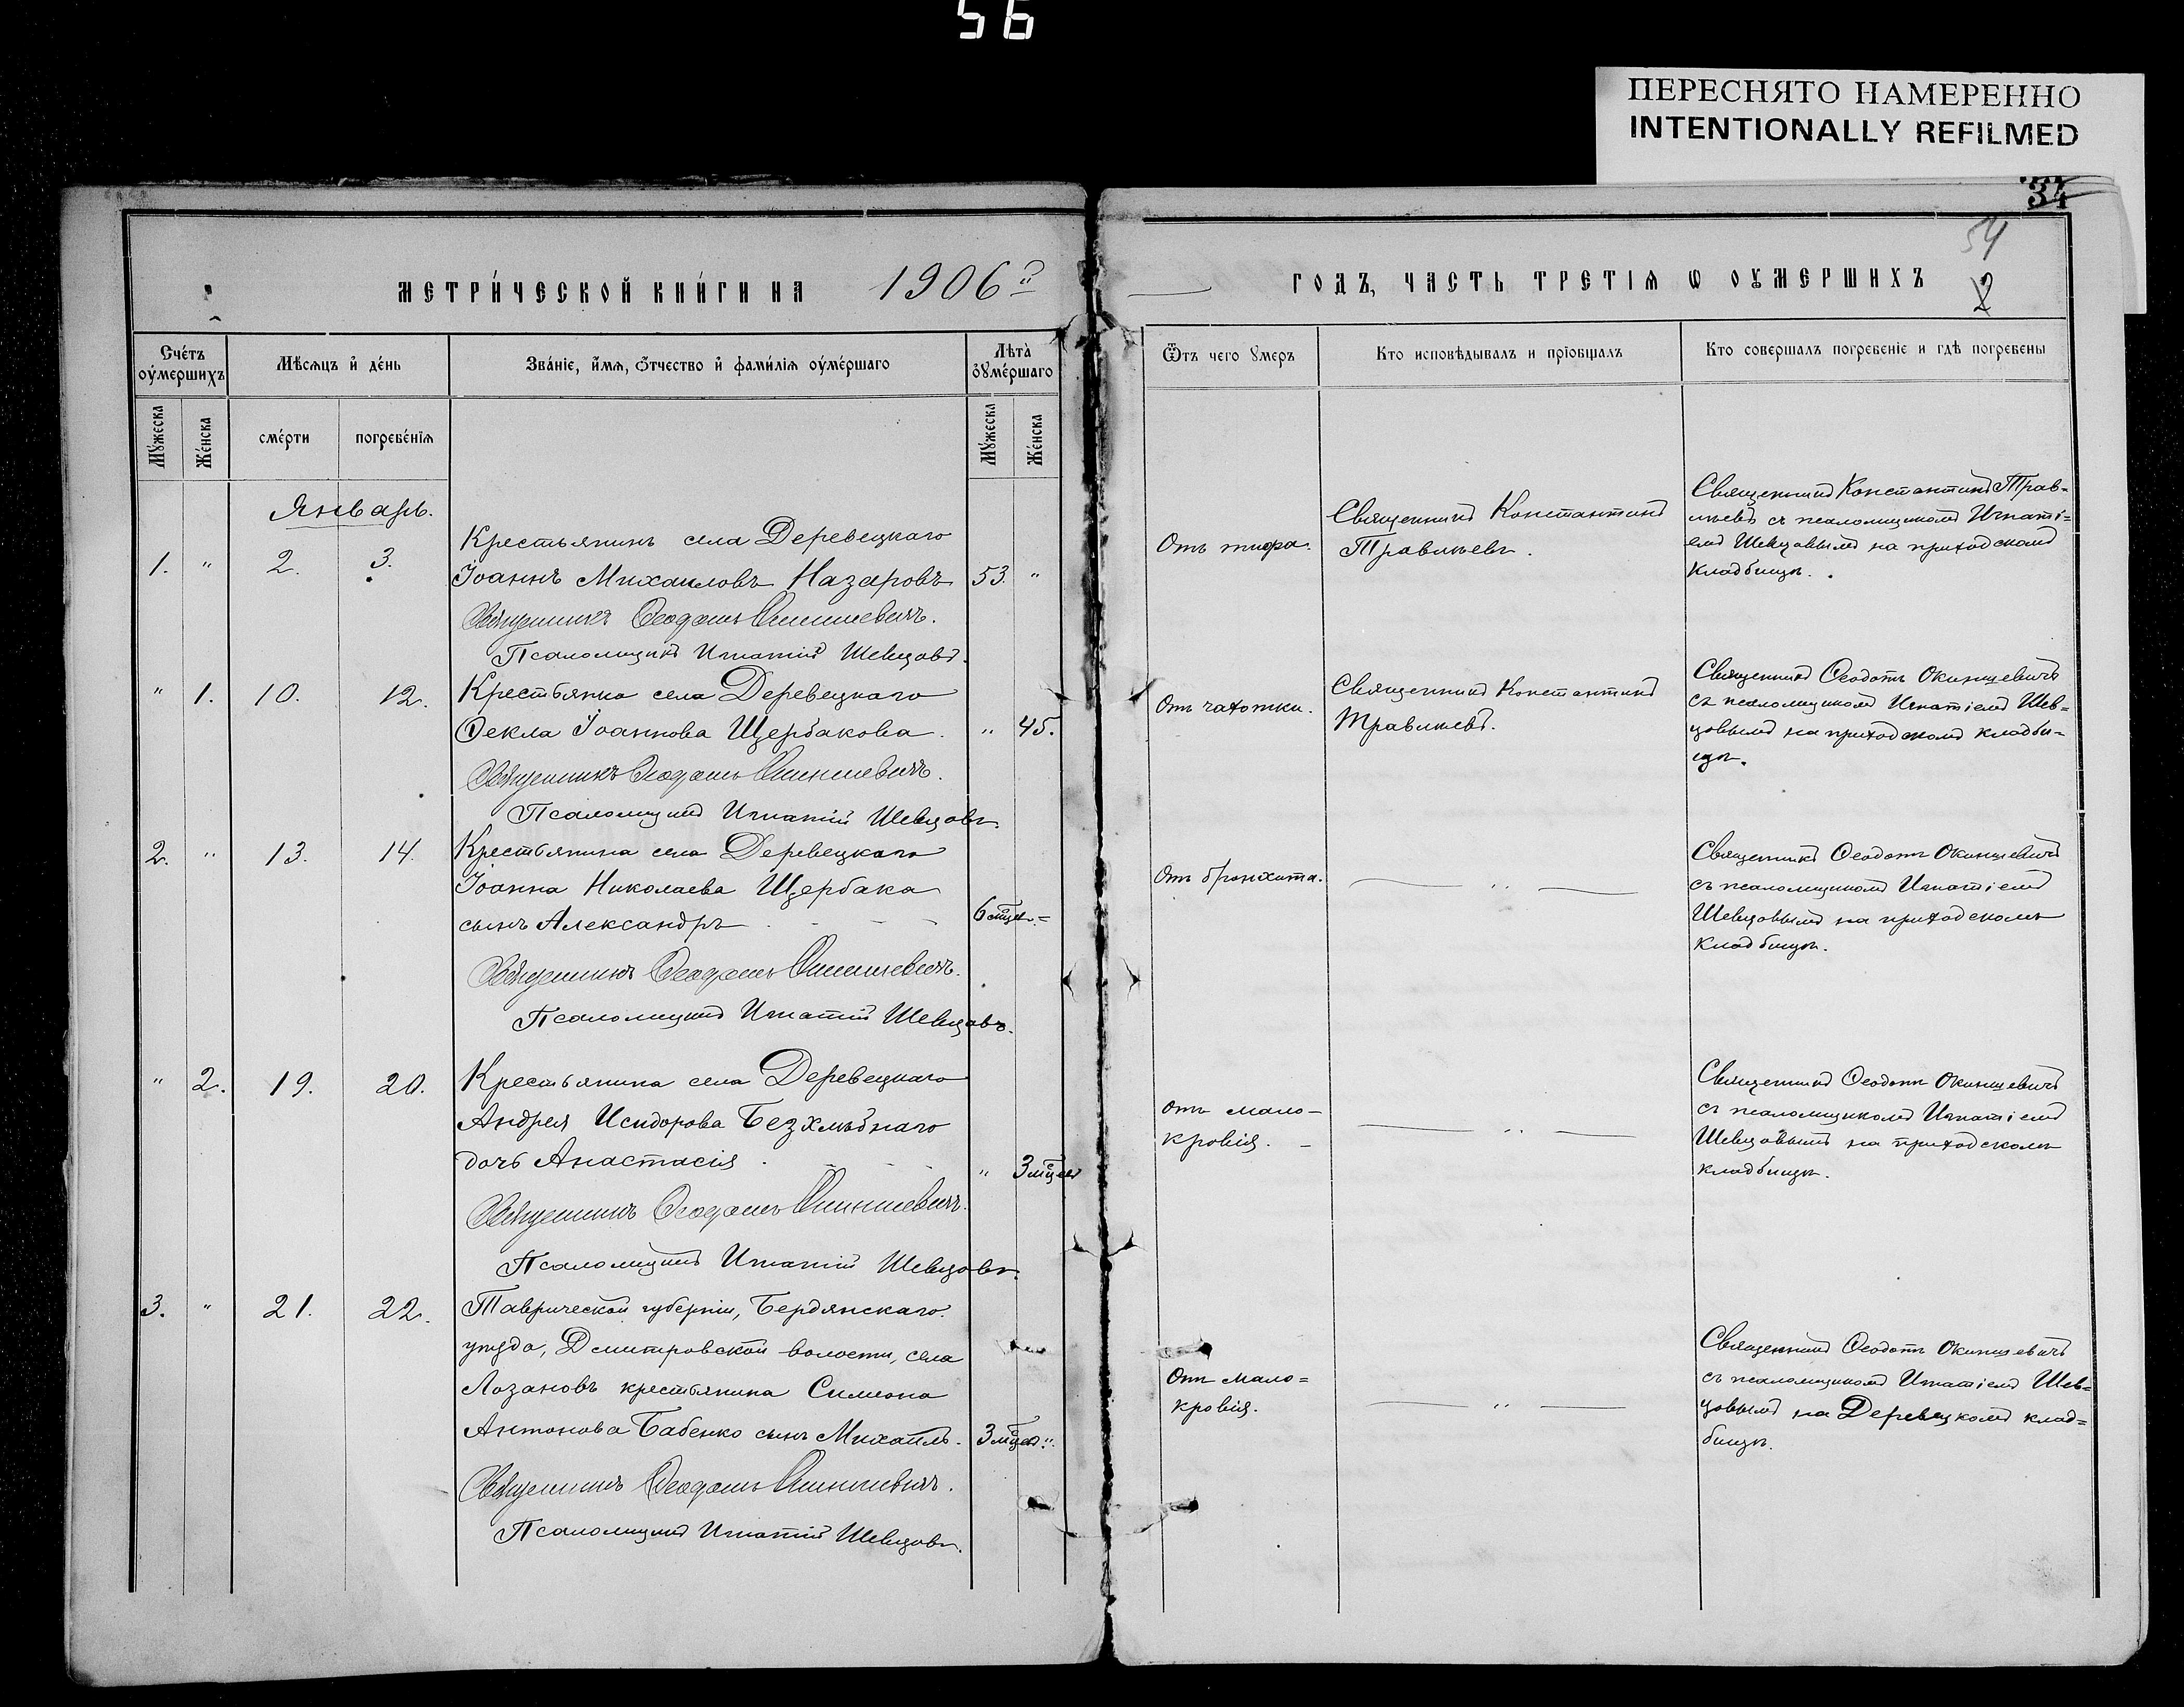 56
ПЕРЕСНЯТО НАМЕРЕННО
INTENTIONALLY REFILMED
34
54
2
МЕТРИ́ЧЕСКОЙ КНИ́ГИ НА 1906й
ГОДЪ, ЧАСТЬ ТРЕТІѦ Ѡ ОУМЕРШИХЪ
Сче́тъ оу҆ме́ршихъ
Мѣ́сѧцъ и҆ де́нь
Зва́ніе, и҆́мѧ, ѻ҆́тчество и҆ фами́лїѧ оу҆ме́ршаго
Лѣ́та оу҆ме́ршаго
Ѿтъ чего ꙋмеръ
Кто исповѣдывалъ и прїобщалъ
Кто совершалъ погребеніе и гдѣ погребены
Мꙋ́жеска
Же́нска
сме́рти
погребе́нїѧ
Мꙋ́жеска
Же́нска
Январь.
1. " 2. 3.
Крестьянинъ села Деревецкаго
Іоаннъ Михаиловъ Назаровъ 53. "
Священникъ Ѳеодотъ Окиншевичъ.
Псаломщикъ Игнатій Шевцовъ.
Отъ тифа.
Священникъ Константинъ
Травлѣевъ.
Священникъ Константинъ Трав-
лѣевъ съ псаломщикомъ Игнаті-
емъ Шевцовымъ на приходскомъ
кладбищѣ.
" 1. 10. 12.
Крестьянка села Деревецкаго
Ѳекла Іоаннова Щербакова. " 45.
Священникъ Ѳеодотъ Окиншевичъ.
Псаломщикъ Игнатій Шевцовъ.
Отъ чахотки.
Священникъ Константинъ
Травлѣевъ.
Священникъ Ѳеодотъ Окиншевичъ
съ псаломщикомъ Игнатіемъ Шев=
цовымъ на приходскомъ кладби=
щѣ.
2. " 13. 14.
Крестьянина села Деревецкаго
Іоанна Николаева Щербака
сынъ Александръ 6 мцев.
Священникъ Ѳеодотъ Окиншевичъ.
Псаломщикъ Игнатій Шевцовъ.
Отъ бронхита.
"
Священникъ Ѳеодотъ Окиншевичъ
съ псаломщикомъ Игнатіемъ
Шевцовымъ на приходскомъ
кладбищѣ.
" 2. 19. 20.
Крестьянина села Деревецкаго
Андрея Исидорова Безхлѣбнаго
дочь Анастасія. " 3 мцев
Священникъ Ѳеодотъ Окиншевичъ.
Псаломщикъ Игнатій Шевцовъ.
Отъ мало-
кровія.
"
Священникъ Ѳеодотъ Окиншевичъ
съ псаломщикомъ Игнатіемъ
Шевцовымъ на приходскомъ
кладбищѣ.
3. " 21. 22.
Таврической губерніи, Бердянскаго
уѣзда, Дмитровской волости, села
Лозановъ крестьянина Симеона
Антонова Бабенко сынъ Михаилъ. 3 мцев "
Священникъ Ѳеодотъ Окиншевичъ.
Псаломщикъ Игнатій Шевцовъ.
Отъ мало=
кровія.
"
Священникъ Ѳеодотъ Окиншевичъ
съ псаломщикомъ Игнатіемъ Шев=
цовымъ на Деревецкомъ клад=
бищѣ.